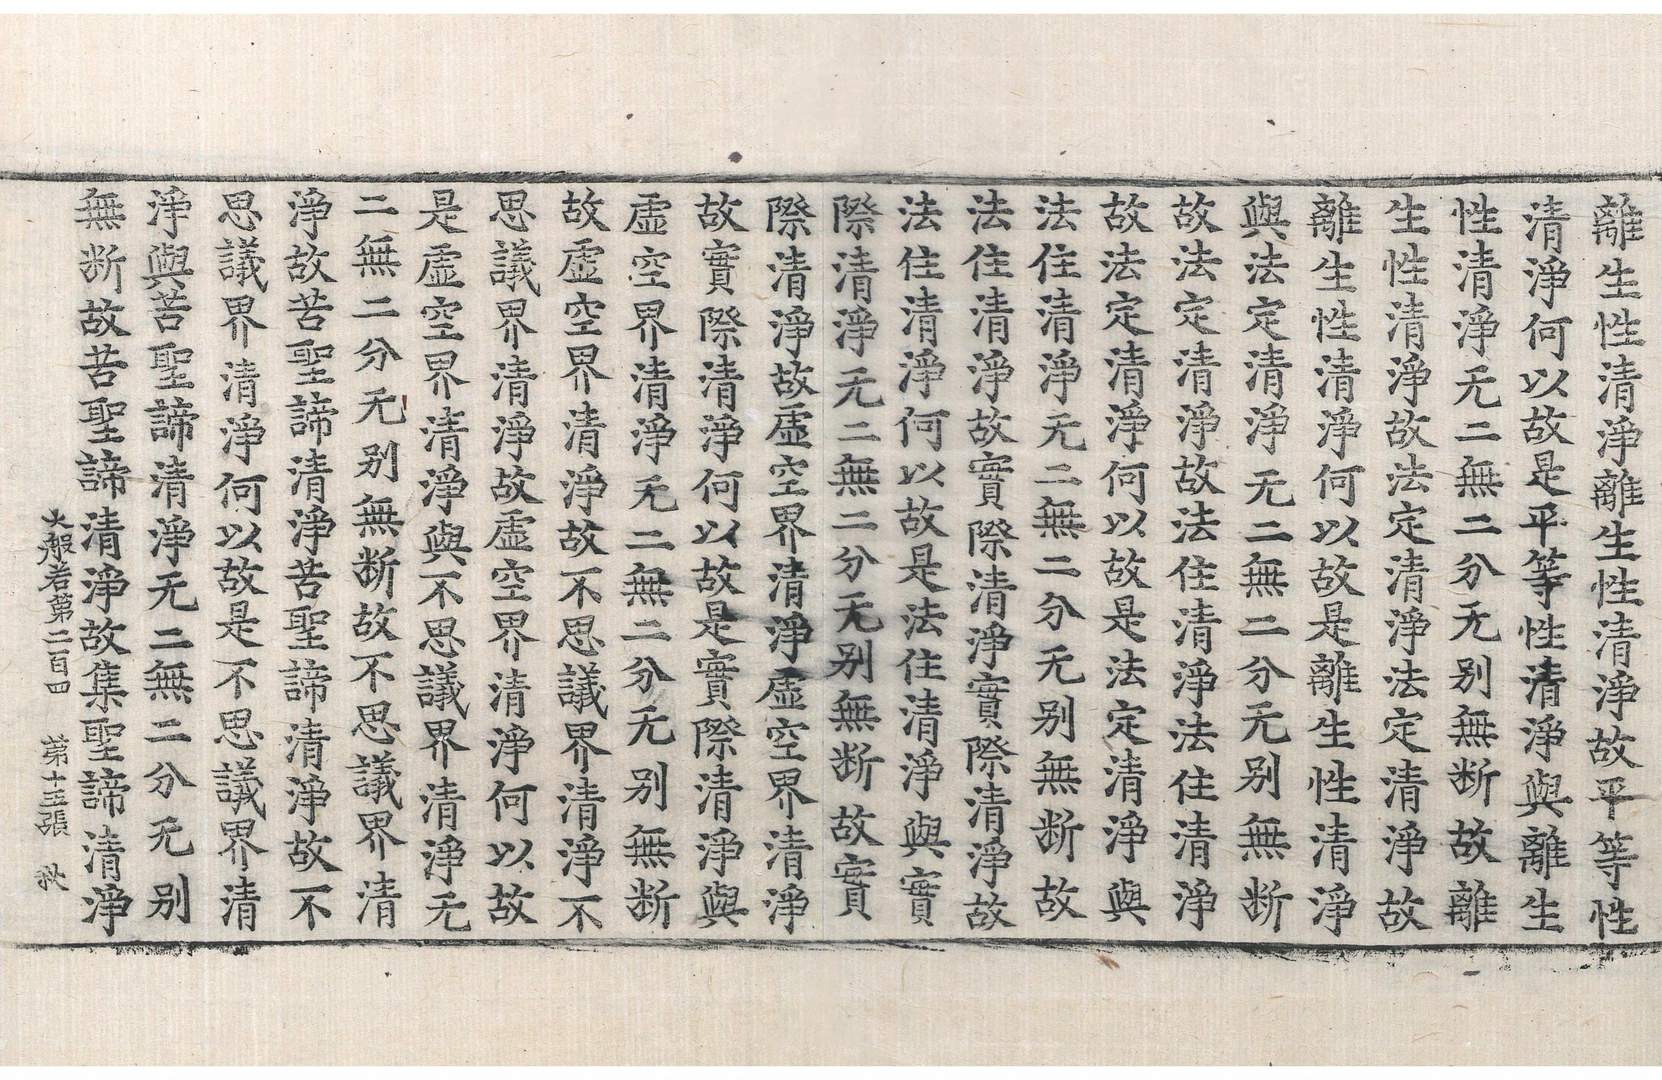 離生性清淨離生性清淨故平等性
清淨何以故是平等性清淨與離生
性清淨无二無二分无别無断故離
生性清淨故法定清淨法定清淨故
離生性清淨何以故是離生性清淨
與法定清淨无二無二分无别無断
故法定清淨故法住清淨法住清淨
故法定清淨何以故是法定清淨與
法住清淨无二無二分无别無断故
法住清淨故實際清淨實際清淨故
法住清淨何以故是法住清淨與實
際清淨无二無二分无别無断故實
際清淨故虛空界清淨虛空界清淨
故實際清淨何以故是實際清淨與
虛空界清淨无二無二分无别無断
故虛空界清淨故不思議界清淨不
思議界清淨故虛空界清淨何以故
是虛空界清淨與不思議界清淨无
二無二分无别無断故不思議界清
淨故苦聖諦清淨苦聖諦清淨故不
思議界清淨何以故是不思議界清
淨與苦聖諦清淨无二無二分无别
無断故苦聖諦清淨故集聖諦清淨
大般若第二百四 第十五張 秋